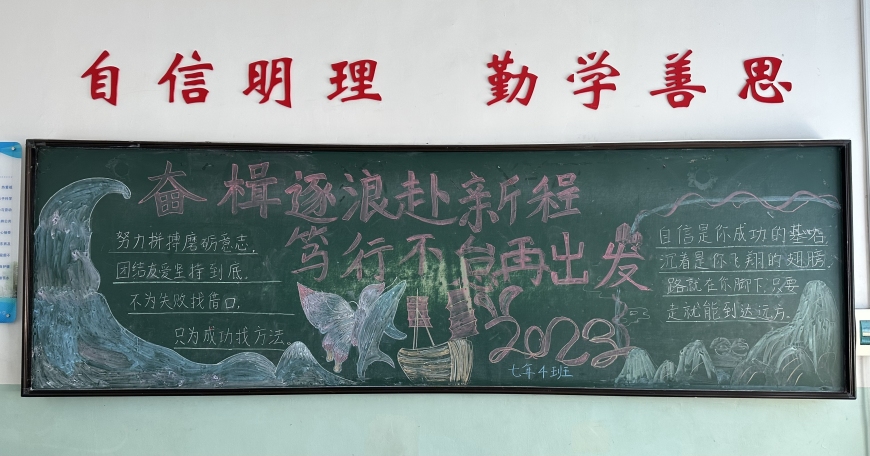 自信明理 勤学善思
奋楫逐浪赴新程
笃行不怠再出发
努力拼搏磨砺意志,
团结友爱坚持到底.
不为失败找借口,
只为成功找方法。
2023
七年4班
自信是你成功的基石
沉着是你飞翔的翅膀.
路就在你脚下,只要
走就能到达远方.